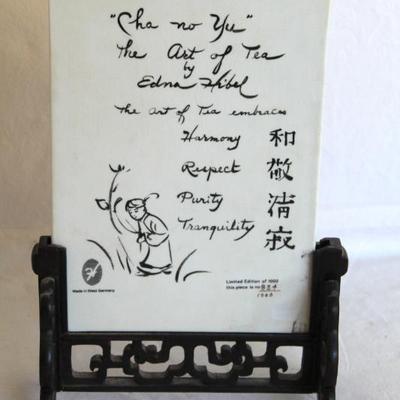 "Cha no Yu"
The Art of Tea
by
Edna Hibel
The Art of Tea embraces
Harmony 和
Respect 敬
Purity 清
Tranquility 寂
Made in West Germany
Limited Edition of 1000
this piece is no.